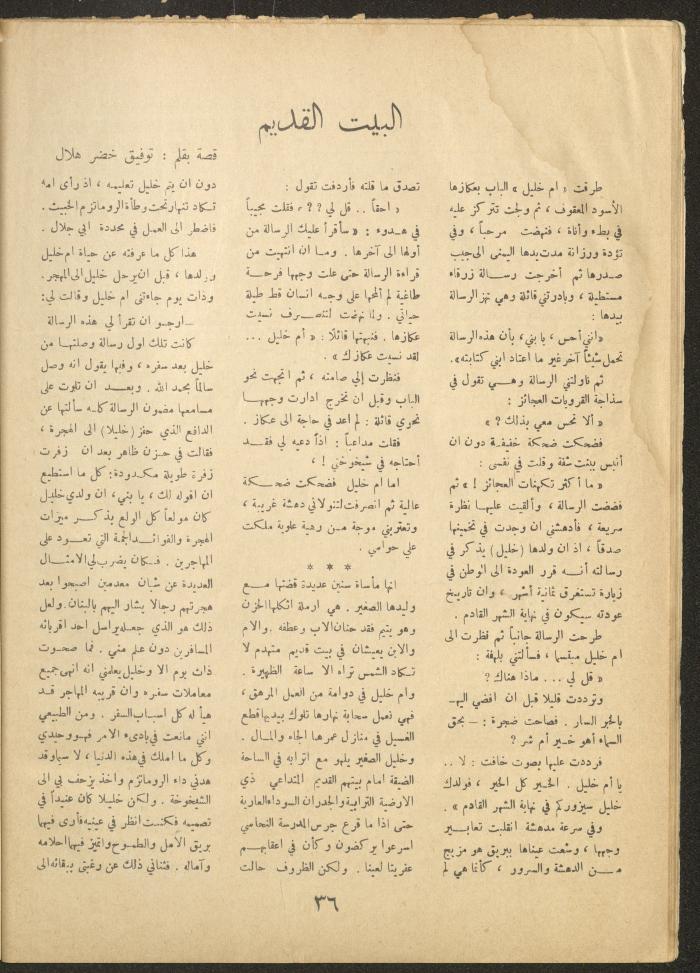 البيت القديم
قصة بقلم : توفيق خضر هلال
طرقت « ام خليل » الباب بعكازها
الأسود المعقوف ، ثم ولجت تتركز عليه
في بطء وأناة ، فنهضت مرحباً ، وفي
تؤدة ورزانة مدت يدها اليمنى الى جيب
صدرها ثم أخرجت رسالة زرقاء
مستطيلة ، وبادرتني قائلة وهي تهز الرسالة
بيدها :
«انني أحس ، يا بني ، بأن هذه الرسالة
تحمل شيئاً آخر غير ما اعتاد ابني كتابته» .
ثم ناولتني الرسالة وهي تقول في
سذاجة القرويات العجائز :
« ألا تحس معي بذلك ؟ »
فضحكت ضحكة خفيفة دون ان
أنبس ببنت شفة وقلت في نفسي :
« ما أكثر تكهنات العجائز ! » ثم
فضضت الرسالة ، وألقيت عليها نظرة
سريعة ، فأدهشني ان وجدت في تخمينها
صدقاً ، اذ ان ولدها (خليل) يذكر في
رسالته أنه قرر العودة الى الوطن في
زيارة تستغرق ثمانية أشهر ، وان تاريخ
عودته سيكون في نهاية الشهر القادم .
طرحت الرسالة جانباً ثم نظرت الى
ام خليل مبتسماً ، فسألتني بلهفة :
« قل لي ... ماذا هناك ؟
وترددت قليلا قبل ان افضي اليه
بالخبر السار . فصاحت ضجرة : ــ بحق
السماء أهو خير أم شر ؟
فرددت عليها بصوت خافت : لا ..
يا أم خليل . الخير كل الخير ، فولدك
خليل سيزوركم في نهاية الشهر القادم » .
وفي سرعة مدهشة انقلبت تعابير
وجهها ، وشعت عيناها ببريق هو مزيج
من الدهشة والسرور ، كأنما هي لم
تصدق ما قلته فأردفت تقول :
« احقاً .. قل لي ؟ ؟ » فقلت مجيباً
في هدوء : « سأقرأ عليك الرسالة من
أولها الى آخرها . وما ان انتهيت من
قراءة الرسالة حتى علت وجهها فرحة
طاغية لم ألمحها على وجه انسان قط طيلة
حياتي . ولما نهضت لتنصرف نسيت
عكازها . فنبهتها قائلا : « أم خليل ...
لقد نسيت عكازك » .
فنظرت إلي صامتة ، ثم اتجهت نحو
الباب وقبل ان تخرج ادارت وجهها
نحوي قائلة : لم اعد في حاجة الى عكاز .
فقلت مداعباً : اذاً دعيه لي فقد
أحتاجه في شيخوختي ! ،
اما ام خليل فضحكت ضحكة
عالية ثم انصرفت لتتولاني دهشة غريبة ،
وتعتريني موجة من رهبة علوية ملكت
علي حواسي .
* * *
انها مأساة سنين عديدة قضتها مع
وليدها الصغير . هي ارملة اثكلها الحزن
وهو يتيم فقد حنان الاب وعطفه . والام
والابن يعيشان في بيت قديم متهدم لا
تكاد الشمس تراه الا ساعة الظهيرة .
وام خليل في دوامة من العمل المرهق ،
فهي تعمل سحابة نهارها تلوك بيديها قطع
الغسيل في منازل عمرها الجاه والمال .
وخليل الصغير يلهو مع اترابه في الساحة
الضيقة امام بيتهم القديم المتداعي ذي
الارضية الترابية والجدران السوداء العارية
حتى اذا ما قرع جرس المدرسة النحاسي
اسرعوا يركضون وكأن في اعقابهم
عفريتا لعينا . ولكن الظروف حالت
دون ان يتم خليل تعليمه ، اذ رأى امه
تكاد تنهار تحت وطأة الروماتزم الخبيث .
فاضطر الى العمل في محددة ابي جلال .
هذا كل ما عرفته عن حياة ام خليل
وولدها ، قبل ان يرحل خليل الى المهجر .
وذات يوم جاءتني ام خليل وقالت لي :
ــ ارجو ان تقرأ لي هذه الرسالة
كانت تلك اول رسالة وصلتها من
خليل بعد سفره ، وفيها يقول انه وصل
سالماً بحمد الله . وبعد ان تلوت على
مسامعها مضمون الرسالة كله سألتها عن
الدافع الذي حفز (خليلا) الى الهجرة ،
فقالت في حزن ظاهر بعد ان زفرت
زفرة طويلة مكدودة : كل ما استطيع
ان اقوله لك ، يا بني ، ان ولدي خليل
كان مولعاً كل الولع بذكر ميزات
الهجرة والفوائد الجمة التي تعود على
المهاجرين . فكان يضرب لي الامثال
العديدة عن شبان معدمين اصبحوا بعد
هجرتهم رجالا يشار اليهم بالبنان . ولعل
ذلك هو الذي جعله يراسل احد اقربائه
المسافرين دون علم مني . فما صحوت
ذات يوم الا وخليل يعلمني انه انهى جميع
معاملات سفره وان قريبه المهاجر قد
هيأ له كل اسباب السفر . ومن الطبيعي
انني مانعت في بادىء الامر فهو وحيدي
وكل ما املك في هذه الدنيا ، لا سيما وقد
هدني داء الروماتزم واخذ يزحف بي الى
الشيخوخة . ولكن خليلا كان عنيداً في
تصميمه فكنت انظر في عينيه فأرى فيهما
بريق الأمل والطموح واتميز فيهما احلامه
وآماله . فثناني ذلك عن رغبتي ببقائه الى
٣٦